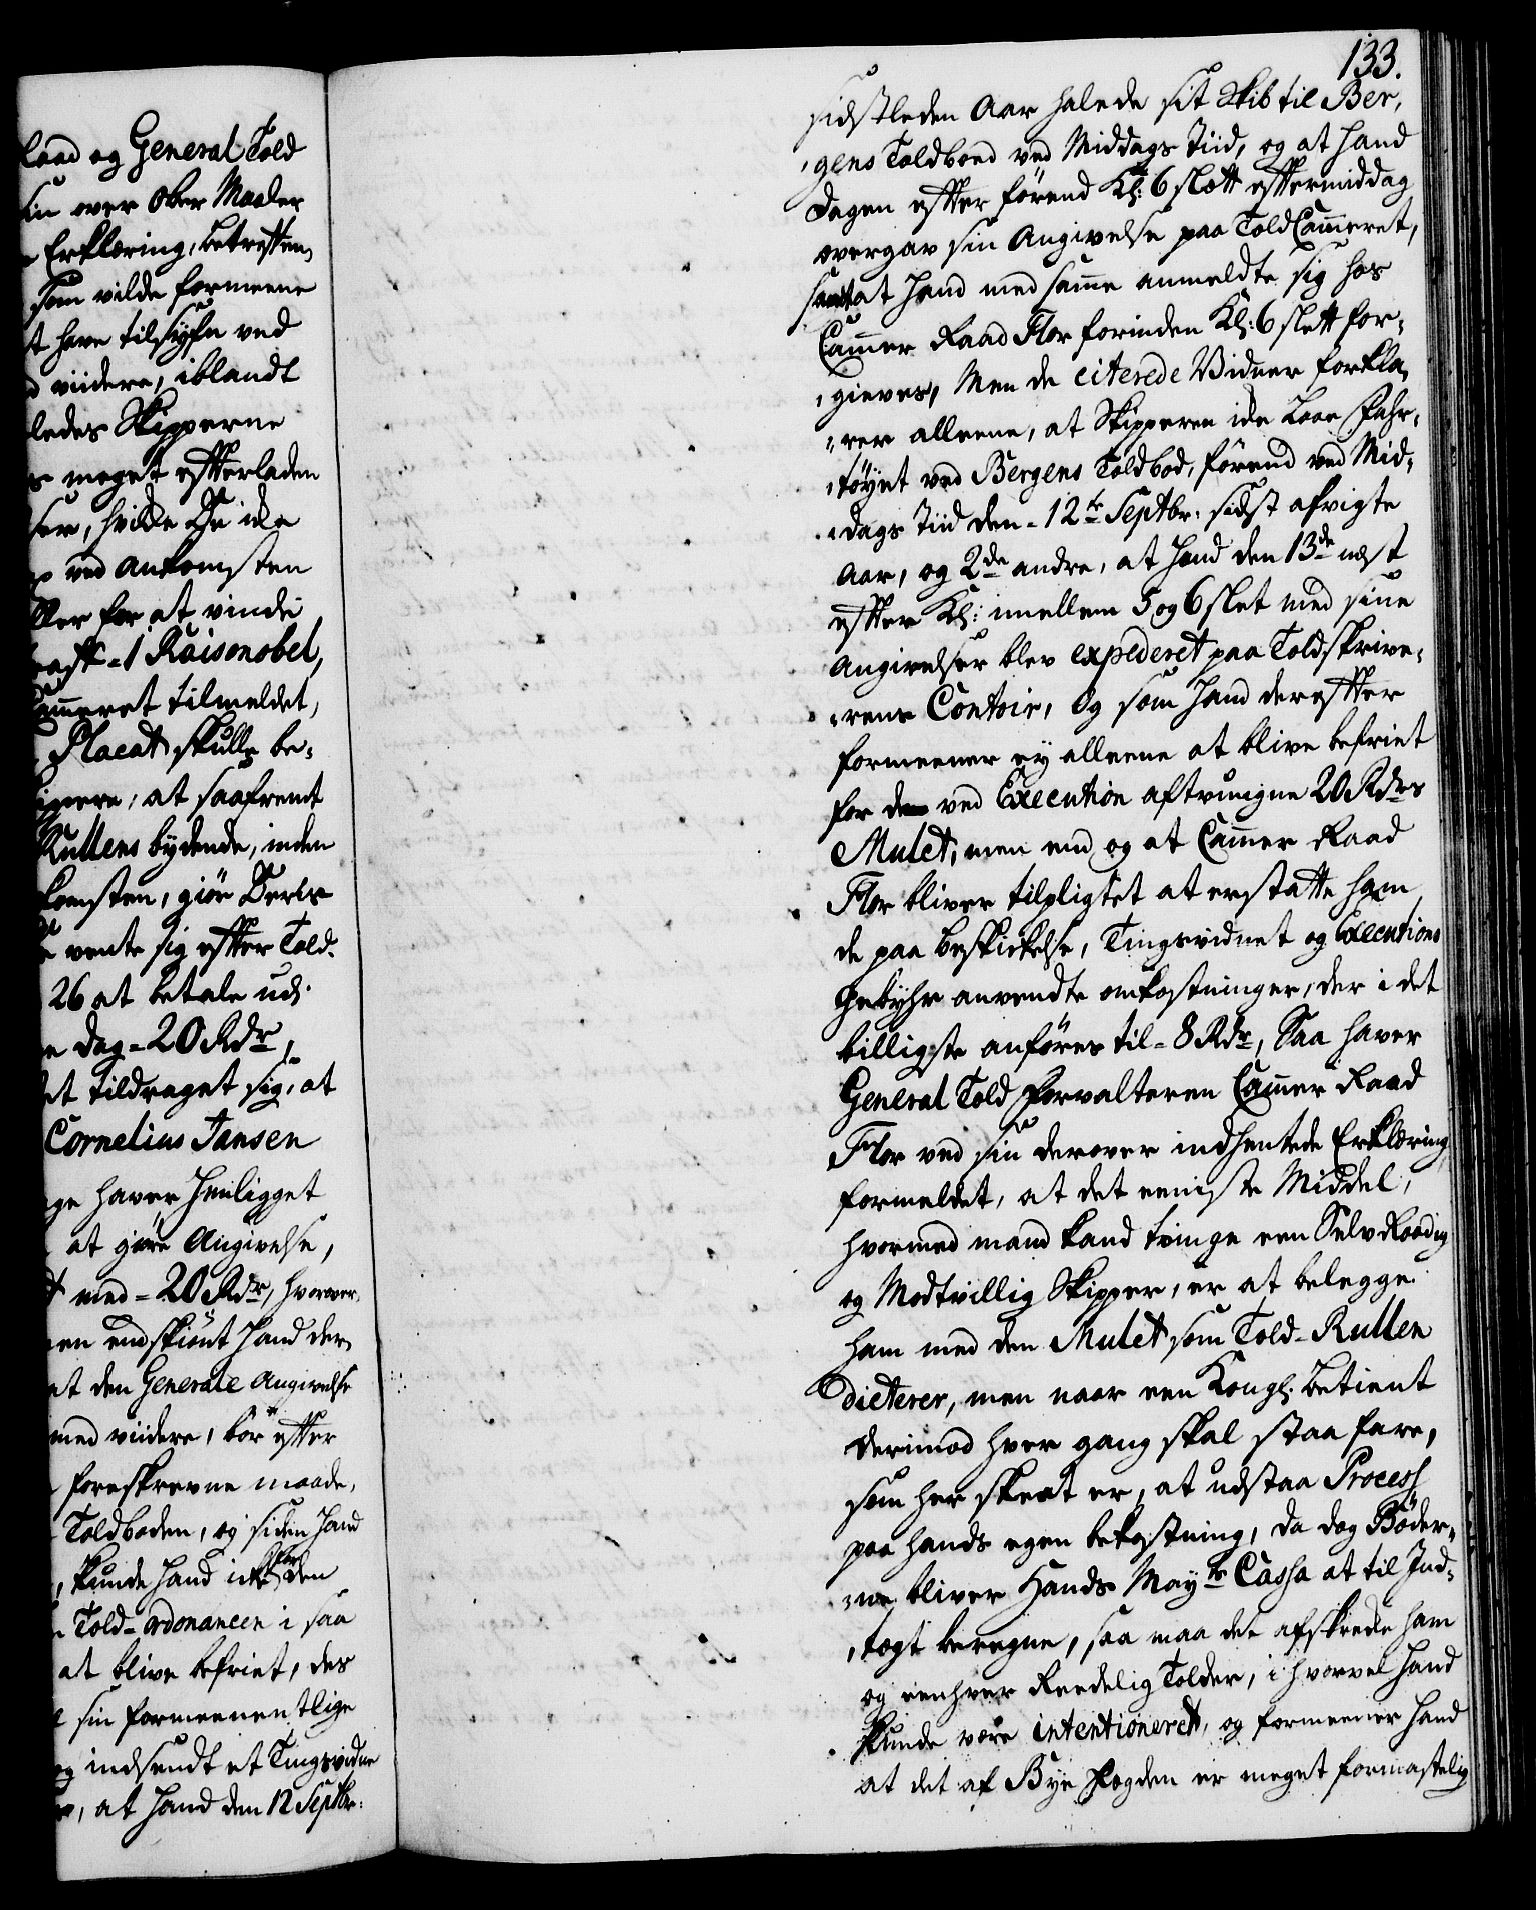 Raad og General Told
sin over Ober Maaler
Erklæring, betreffen,
som vilde formeene
at have tilsyfn ved
viidere, iblandt
ledes Skipperne
meget efterladen
ser, hvilke De icke
ved Ankomsten
ter for at vinde
1 Roisonobel,
Cammeret tilmeldet,
Placat skulle be„
ippere, at saafremt
Rullens bydende, inden
komsten, giør Deris
vente sig efter Told„
26 at betale ud„
Dag = 20 Rdr,
et tildraget sig, at
Cornelius Jansen
ge haver henligget
at giøre Angivelse,
med = 20 Rdr, hvorover
en endskiønt hand der„
at den Generale Angivelse
med viidere, bør efter
foreskrevne maade,
Toldboden, og siden hand
, kunde hand icke efter den
Told-Ordonancen i saa
at blive befriet, des
sin formeenentlige
og indsendt et Tingsvidne
, at hand den 12 Septbr:
133.
sidstleden Aar halede sit Skib til Ber„
„gens Toldboed ved Middags Tiid, og at hand
Dagen efter førend Kl: 6 slætt eftermiddag
overgav sin Angivelse paa ToldCammeret,
samt at hand med samme anmeldte sig hos
Cammer Raad Flor forinden Kl: 6 slett for„
„gieves, Men de citerede Vidner forkla„
„rer alleene, at Skipperen icke Laae Fahr„
„tøyet ved Bergens Toldbod, førend ved Mid„
„dags Tiid den = 12te Septbr: sidst afvigte
Aar, og 2de andre, at hand den 13de næst
efter Kl: imellem 5 og 6 slet med sine
Angivelser blev expederet paa Toldskrive„
„rens Contoir, Og som hand derefter
formeener ey alleene at blive befriet
for de ved Execution aftvungne 20 Rdrs
Mulct, men end og at Cammer Raad
Flor bliver tilpligtet at erstatte ham
de paa beskickelse, Tingsvidnet og Executions
Gebyhr anvendte omkostninger, der i det
billigste anføres til = 8 Rdr, Saa haver
General Told Forvalteren Cammer Raad
Flor ved sin derover indhentede Erklæring
formeldet, at det eeniste Middel,
hvormed mand kand tvinge een SelvRaadig
og Modtvillig Skipper, er at belegge
ham med den Mulct som Told-Rullen
dicterer, men naar een Kongl. betient
derimod hver gang skal staa fare,
som her skeet er, at udstaa Process
paa hands egen bekostning, da dog Bøder„
„ne bliver Hands Mayts Cassa at til Ind„
„tægt beregne, saa maa det afskrecke ham
og eenhver Reedelig Tolder, i hvorvel hand
kunde være intentioneret, og formeener hand
at det af Bye Fogden er meget formastelig